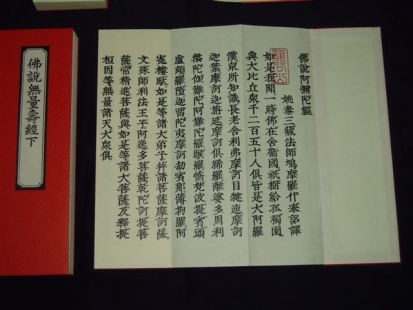 佛說阿彌陀經
姚秦三藏法師鳩摩羅什奉詔譯
如是我聞一時佛在舍衞國祇樹給孤獨園
與大比丘衆千二百五十人俱皆是大阿羅
漢衆所知識長老舍利弗摩訶目犍連摩訶
迦葉摩訶迦旃延摩訶俱絺羅離婆多周利
槃陀伽難陀阿難陀羅睺羅憍梵波提賓頭
盧頗羅墮迦留陀夷摩訶劫賓那薄拘羅阿
㝹樓馱如是等諸大弟子幷諸菩薩摩訶薩
文殊師利法王子阿逸多菩薩乾陀訶提菩
薩常精進菩薩與如是等諸大菩薩及釋提
桓因等無量諸天大衆俱
佛說無量壽經下